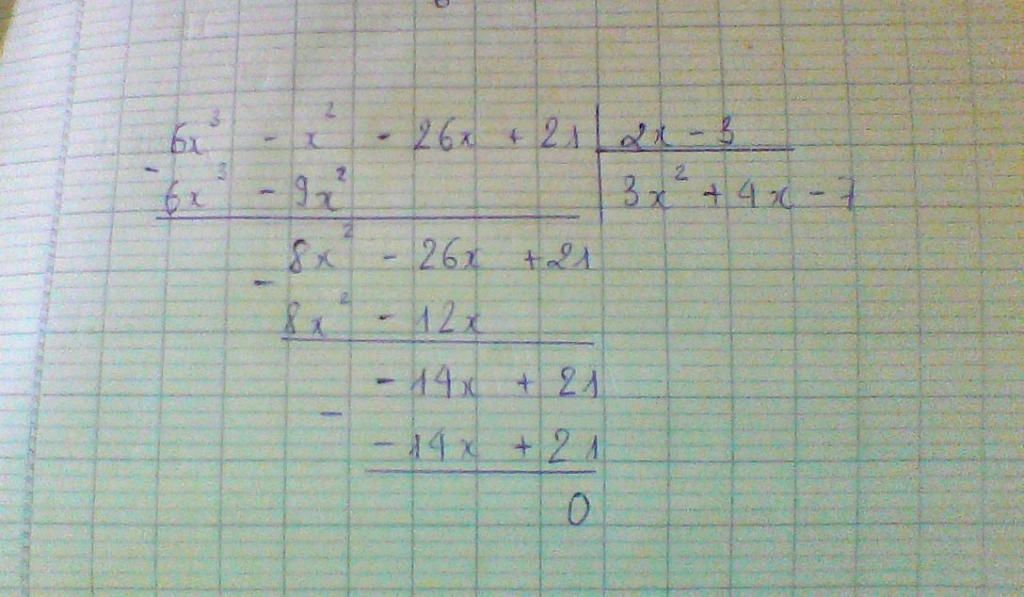 6x³ - x² - 26x + 21 | 2x - 3
- 6x³ - 9x² | 3x² + 4x - 7
8x² - 26x + 21
- 8x² - 12x
-14x + 21
- -14x + 21
0